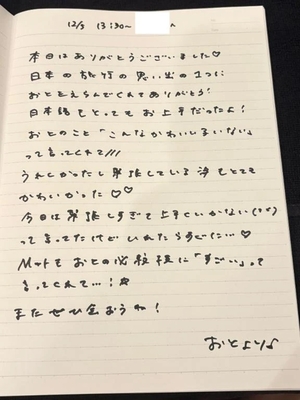 12/3 13:30〜
本日はありがとうございました♡
日本の旅行の思い出の1つに
おとをえらんでくれてありがとう!
日本語もとってもお上手だったよ!
おとのこと「こんなかわいい子いない」
って言ってくれて///
うれしかったし緊張している 姿もとても
かわいかった♡♡
今日は緊張しすぎて上手くいかない
って言ってたけど いれたらすぐに…♡
Mットも おとの必殺技に「すごい」って
言ってくれて…!☆
またぜひ会おうね!
おとより♪